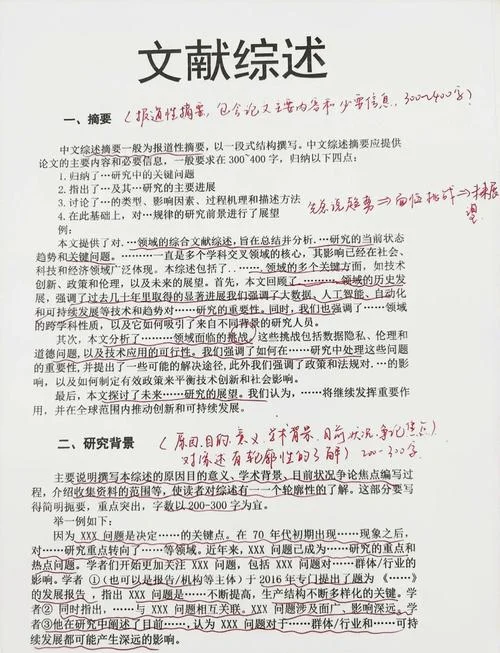 文献综述
一、摘要 (报道性摘要，包含论文主要内容和必要信息，300~400字)
中文综述摘要一般为报道性摘要，以一段式结构撰写。中文综述摘要应提供
论文的主要内容和必要信息，一般要求在300~400字，归纳以下四点：
1.归纳了……研究中的关键问题
2.指出了……及其…研究的主要进展
3.讨论了…的类型、影响因素、过程机理和描述方法
4.在此基础上，对…规律的研究前景进行了展望
先总说趋势⇒面临挑战⇒未来展望
例：
本文提供了对…领域的综合文献综述，旨在总结并分析…研究的当前状态
趋势和关键问题。……一直是多个学科交叉领域的核心，其影响已经在社会、
科技和经济领域广泛体现。本综述包括了……领域的多个关键方面，如技术
创新、政策和伦理，以及未来的展望。首先，本文回顾了……领域的历史发
展，强调了过去几十年里取得的显著进展我们强调了大数据、人工智能、自动化
和可持续发展等技术和趋势对……研究的重要性。同时，我们也强调了……领域
的跨学科性质，以及它如何吸引了来自不同背景的研究人员。
其次，本文分析了……领域面临的挑战，这些挑战包括数据隐私、伦理和
道德问题，以及技术应用的可行性。我们强调了如何在……研究中处理这些问题
的重要性，并提出了一些可能的解决途径，此外我们强调了政策和法规对…的影
响，以及如何制定有效政策来平衡技术创新和社会影响。
最后，本文探讨了未来……研究的展望。我们认为，……将继续发挥重要作
用，并在全球范围内推动创新和可持续发展。
二、研究背景 (原因、目的、意义、学术背景、目前状况、争论焦点)
对综述有轮廓性的了解) 200-300字
主要说明撰写本综述的原因目的意义、学术背景、目前状况争论焦点编写过
程，介绍收集资料的范围等，使读者对综述有一个轮廓性的了解。这部分要写
得简明扼要，重点突出，字数以200-300字为宜。
举一例如下：
因为 XXX 问题是决定……的关键点。在 70 年代初期出现……现象之后，
对……研究重点转向了……等领域。近年来，XXX 问题已成为……研究的重点和
热点问题。学者们开始更加关注 XXX 问题，包括 XXX 问题对……群体/行业的
影响。学者 ①(也可以是报告/机构等主体) 于 2016 年专门提出了题为《……》
的发展报告，指出 XXX 问题是……不断提高，生产结构不断多样化的关键。学
者② 同时指出，……与 XXX 问题相互关联。XXX 问题涉及面广、影响深远。学
者③他在研究中阐述了目前……,认为 XXX 问题对于……群体/行业和……可持
续发展都可能产生深远的影响。